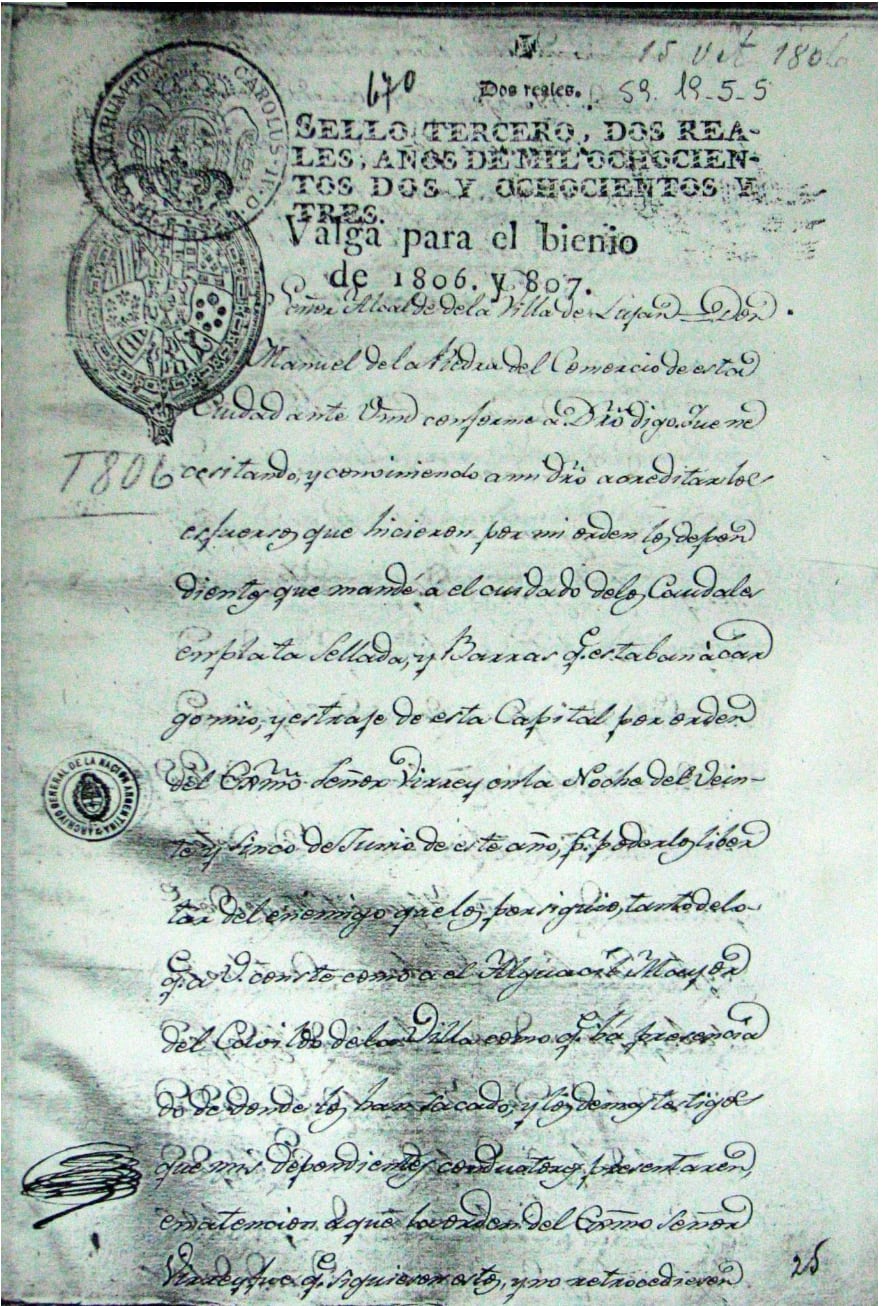 15 Oct 1806
670
Dos reales. 59. 19-5-5
HISPANIARUM REX CAROLUS IV D. G.
SELLO TERCERO, DOS REA-
LES, AÑOS DE MIL OCHOCIEN-
TOS DOS Y OCHOCIENTOS Y
TRES.
Valga para el bienio
de 1806. y 807.
Señor Alcalde de la Villa de Lujan Don
Manuel de la Piedra del Comercio de esta
Ciudad ante Vmd conforme a Dro digo: Que ne
1806
cesitando, y conviniendo a mi dro acreditar los
esfuersos que hicieron por mi orden los depen
dientes que mandé a el cuidado de los Caudales
en plata Sellada, y Barras q.e estaban à car
go mio, y estraje de esta Capital por orden
del Exmo Señor Virrey en la Noche del Vein-
te y sinco de Junio de este año, p.a poderlos liber
tar del enemigo que los persiguio, tanto de lo
q.e a V. conste como a el Alguacil Mayor
del Cavildo de la Villa como q.e há presencia
do de donde los han sacado, y los demas testigos
que mis dependientes conductores presentaren,
en atencion a que la orden del Exmo Señor
Virrey fue q.e siguiesen estos, y no retrocediesen
ARCHIVO GENERAL DE LA NACION ARGENTINA
25